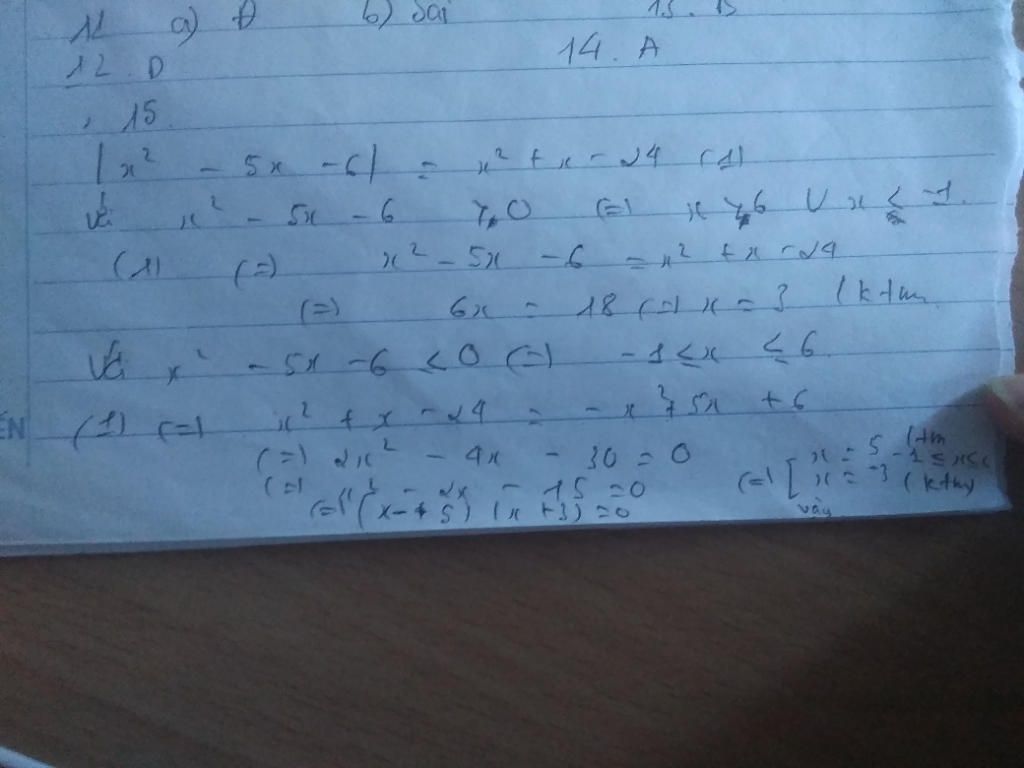 11 a) Đ b) Sai 13. B
12. D 14. A
, 15.
|x² - 5x - 6| = x² + x - 24 (1)
Với x² - 5x - 6 ≥ 0 (=) x ≥ 6 U x ≤ -1.
(1) (=) x² - 5x - 6 = x² + x - 24
(=) 6x = 18 (=) x = 3 (ktm
Với x² - 5x - 6 ≤ 0 (=) -1 ≤ x ≤ 6
EN
(1) (=) x² + x - 24 = - x² + 5x + 6
(=) 2x² - 4x - 30 = 0
(=) x² - 2x - 15 = 0
(=) (x - 5) (x + 3) = 0
(=) [ x = 5 (tm -1 ≤ x ≤
x = -3 (ktm)
vậy